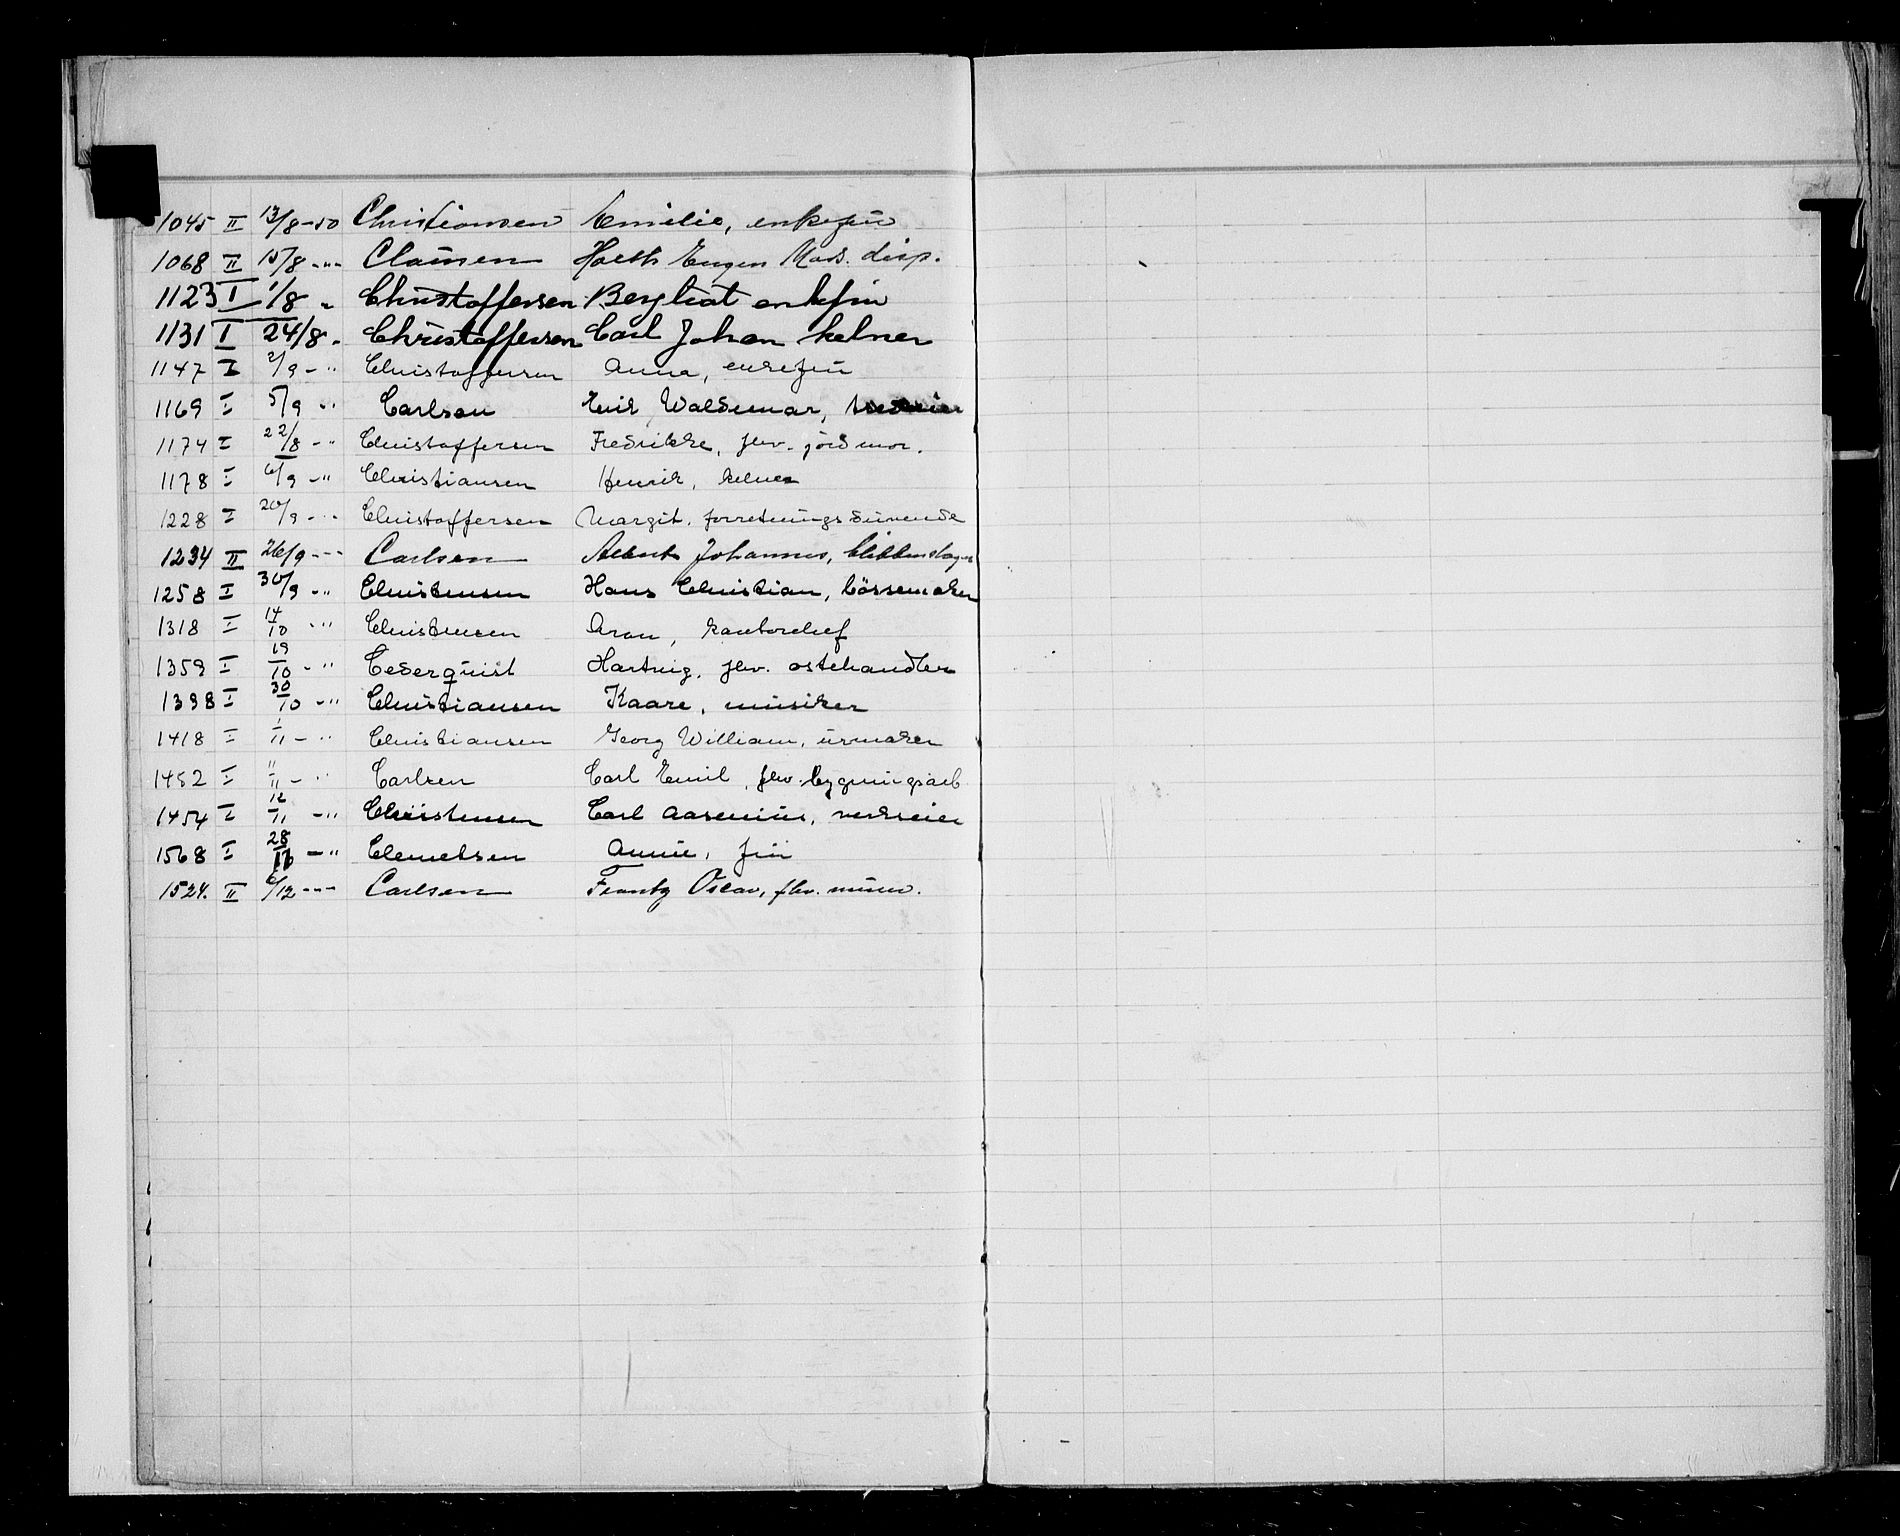 1045 II 13/8-50 Christiansen Emilie, enkefru
1068 II 15/8 -"- Clausen Hoeth Eugen Mad. disp.
1123 I 1/8 " Christoffersen Bergliot enkefru
1131 I 24/8 - Christoffersen Carl Johan kelner
1147 I 2/9 -" Christoffersen Anna, enkefru
1169 I 5/9 -" Carlson Erik Waldemar,
1174 I 22/8 -" Christoffersen Fredrikke, fhv. jordmor.
1178 I 6/9 -" Christiansen Henrik, kelner
1228 I 20/9 -" Christoffersen Margit, forretningsdrivende
1234 II 26/9 -"- Carlsen Albert Johannes, blikkenslager
1258 I 30/9 -" Christensen Hans Christian, børsemaker
1318 I 14/10 -" Christensen Aron, kontorchef
1359 I 19/10 -" Cederquist Hartvig, fhv. ostehandler
1398 I 30/10 -" Christiansen Kaare, musiker
1418 I 1/11 -" Christiansen Georg William, urmaker
1482 I 11/11 -" Carlsen Carl Emil, fhv. bygningsarb.
1454 I 12/11 -" Christensen Carl Aasenius, verkseier
1568 I 28/11 -" Clemetsen Annie, fru
1524. II 6/12 -"- Carlsen Frantz Oscar, fhv. murer.